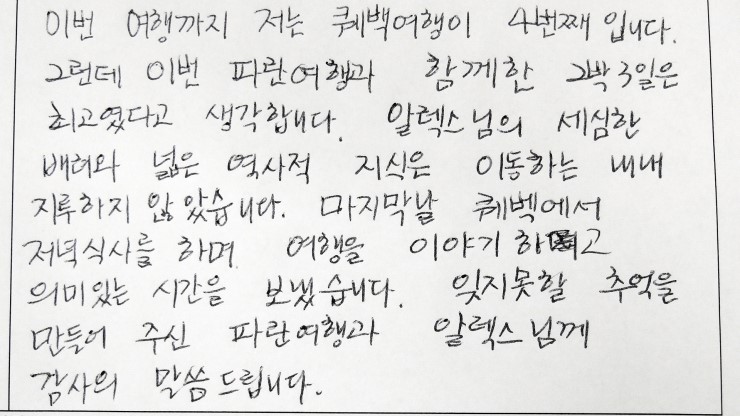 이번 여행까지 저는 퀘백여행이 4번째 입니다.
그런데 이번 파란여행과 함께한 2박 3일은
최고였다고 생각합니다. 알렉스님의 세심한
배려와 넓은 역사적 지식은 이동하는 내내
지루하지 않았습니다. 마지막날 퀘벡에서
저녁식사를 하며 여행을 이야기 하고
의미있는 시간을 보냈습니다. 잊지못할 추억을
만들어 주신 파란여행과 알렉스님께
감사의 말씀드립니다.